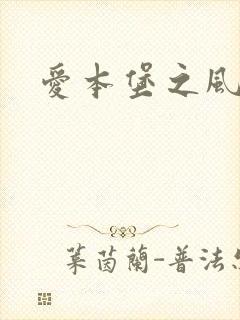 愛本堡之風
萊茵蘭-普法